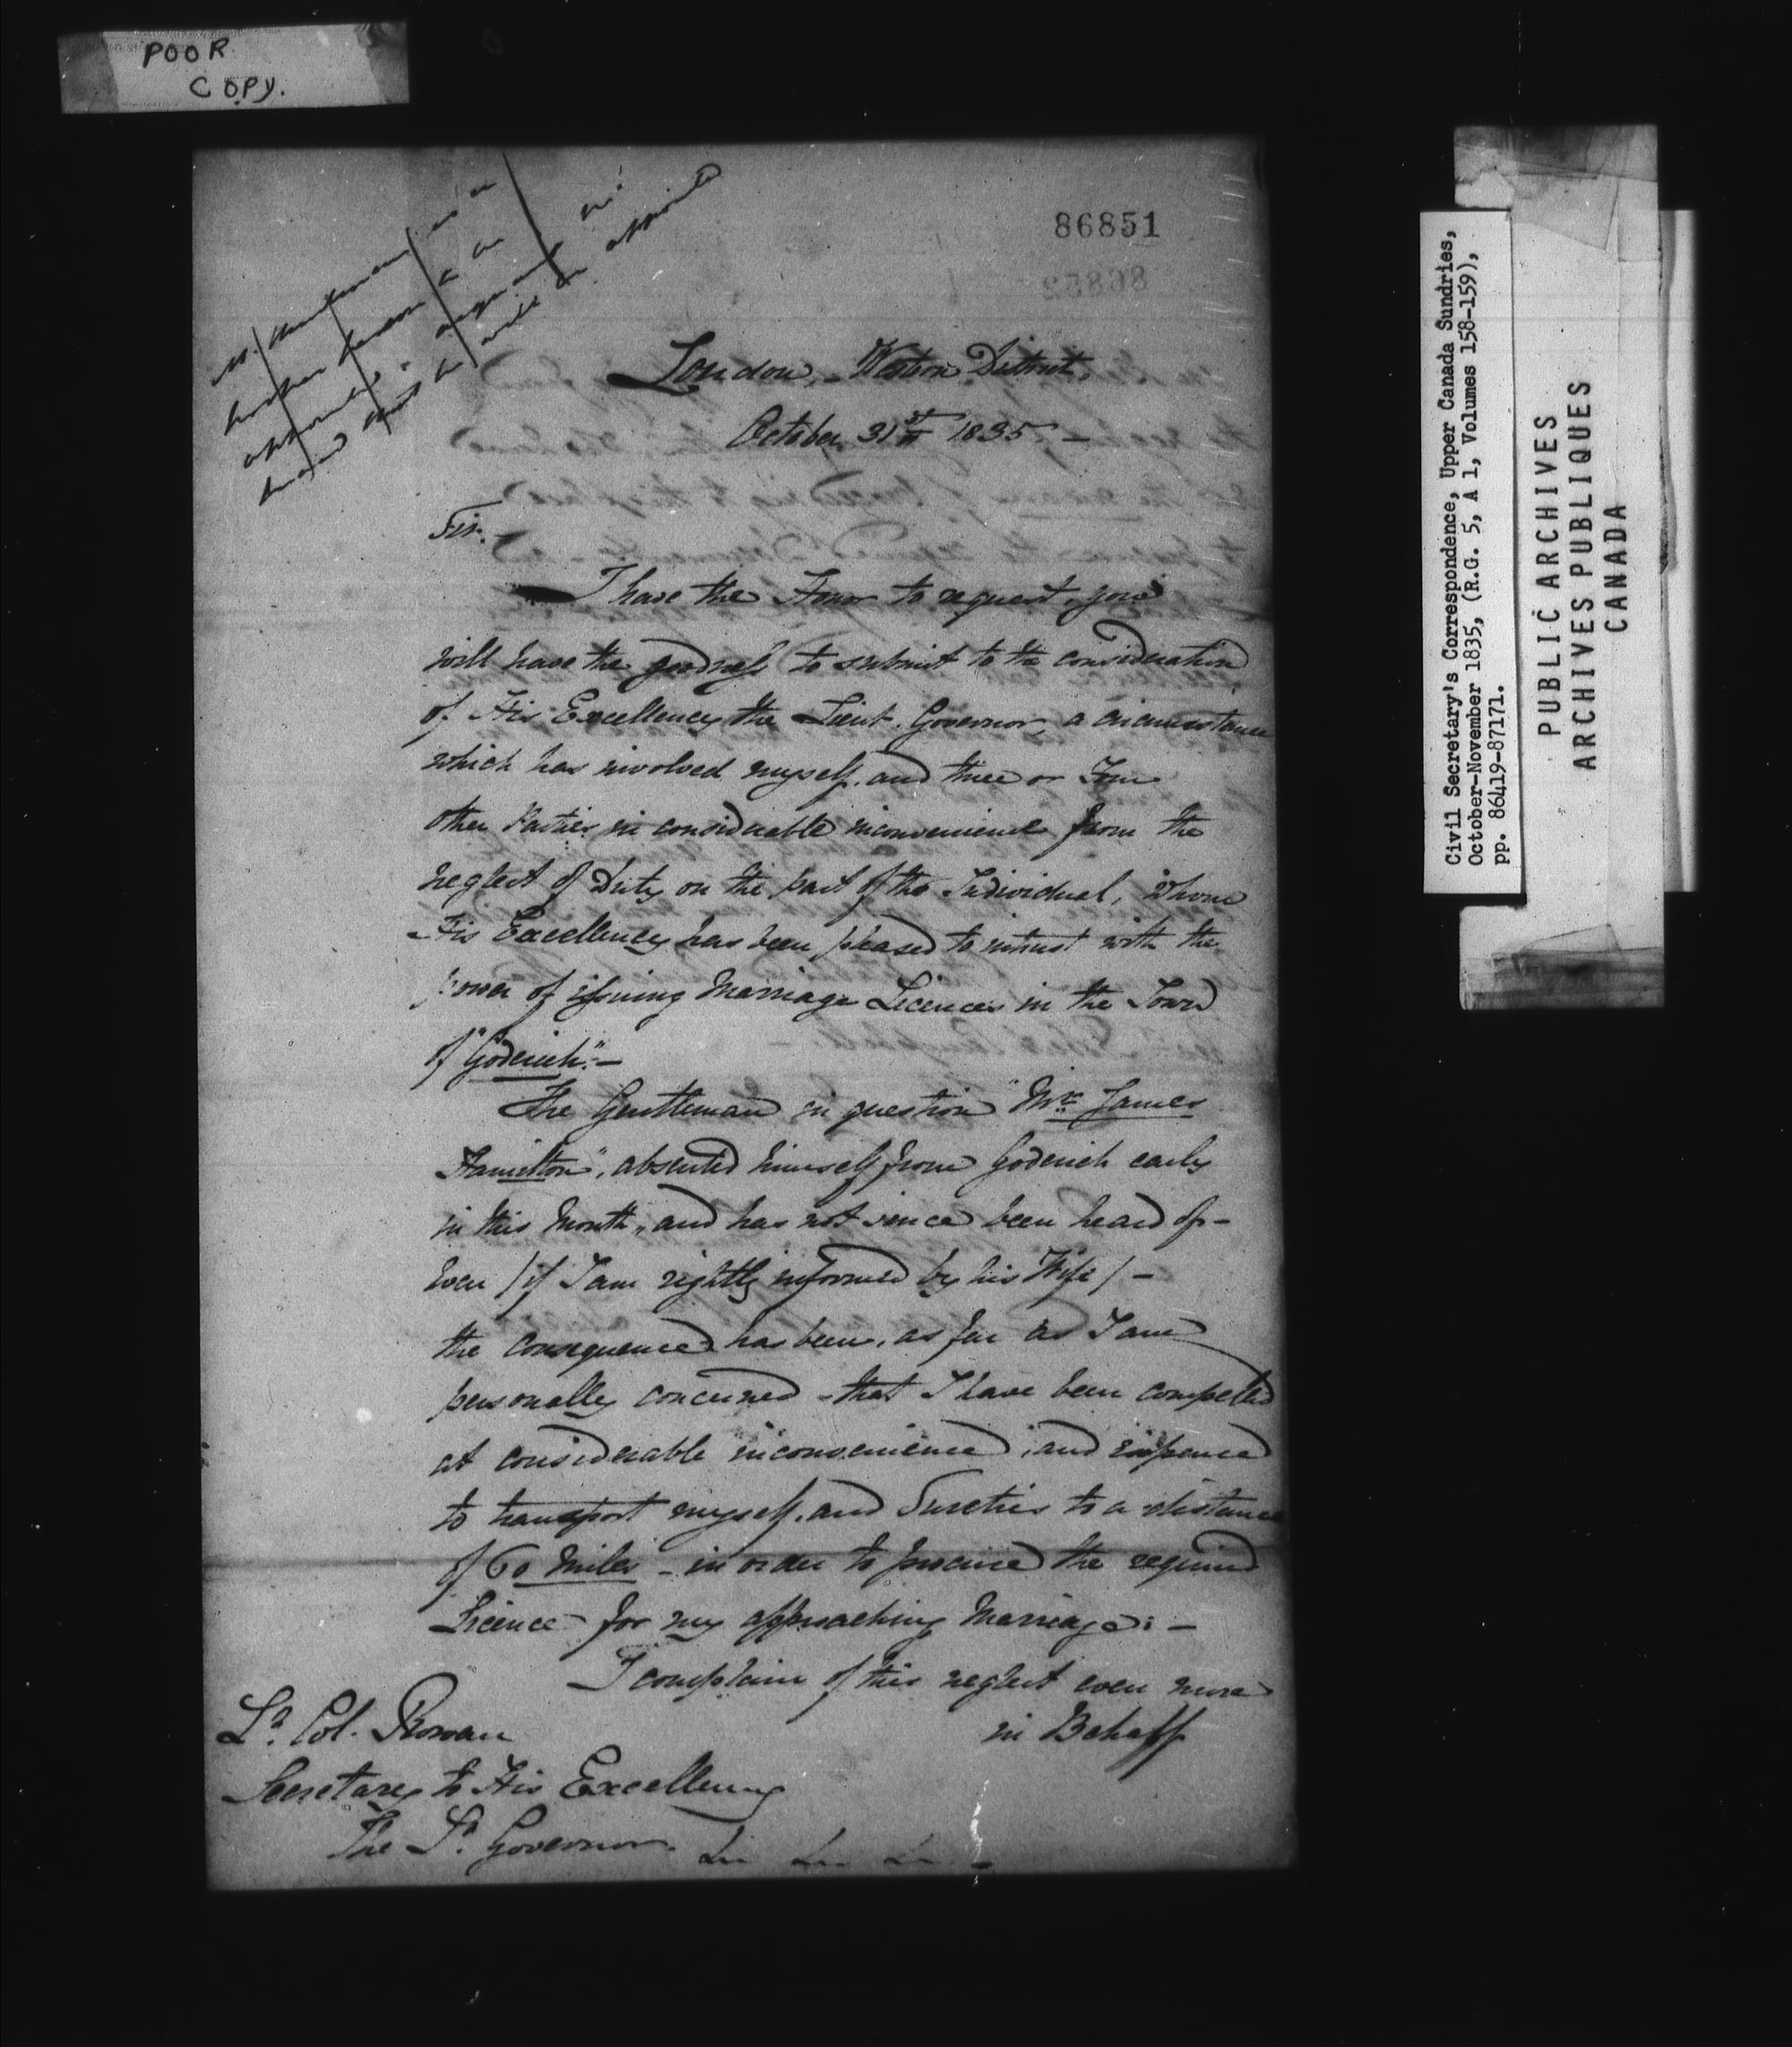 POOR
COPY.
86851
London, Western District,
October 31st 1835 -
Sir.
I have the Honor to request you
will have the goodness to submit to the consideration
of His Excellency the Lieut. Governor, a circumstance
which has involved myself, and three or Four
other Parties in considerable inconvenience from the
neglect of Duty on the part of the Individual, whom
His Excellency has been pleased to intrust with the
power of issuing Marriage Licences in the Town
of "Goderich". -
The Gentleman in question "Mr. James
Hamilton", absented himself from Goderich early
in this Month, and has not since been heard of -
even / if I am rightly informed by his Wife / -
the consequence has been, as far as I am
personally concerned - that I have been compelled
at considerable inconvenience, and expence
to transport myself, and Sureties to a distance
of 60 Miles - in order to procure the required
Licence for my approaching Marriage: -
I complain of this neglect even more
in Behalf
Lt. Col. Rowan
Secretary to His Excellency
The Lt. Governor.
Civil Secretary's Correspondence, Upper Canada Sundries,
October-November 1835, (R.G. 5, A 1, Volumes 158-159),
pp. 86419-87171.
PUBLIC ARCHIVES
ARCHIVES PUBLIQUES
CANADA